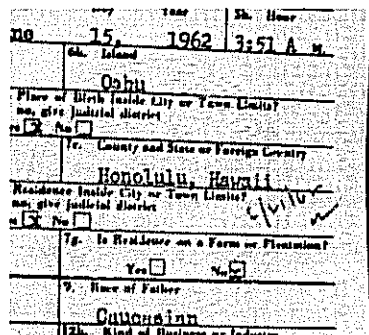 Day Year 5b. Hour
15, 1962 3:51 A M.
6b. Island
Oahu
Place of Birth Inside City or Town Limits?
no, give judicial district
X No
7c. County and State or Foreign Country
Honolulu, Hawaii
Residence Inside City or Town Limits?
no, give judicial district
X No
7g. Is Residence on a Farm or Plantation?
Yes No X
9. Race of Father
Caucasian
12b. Kind of Business or Industry